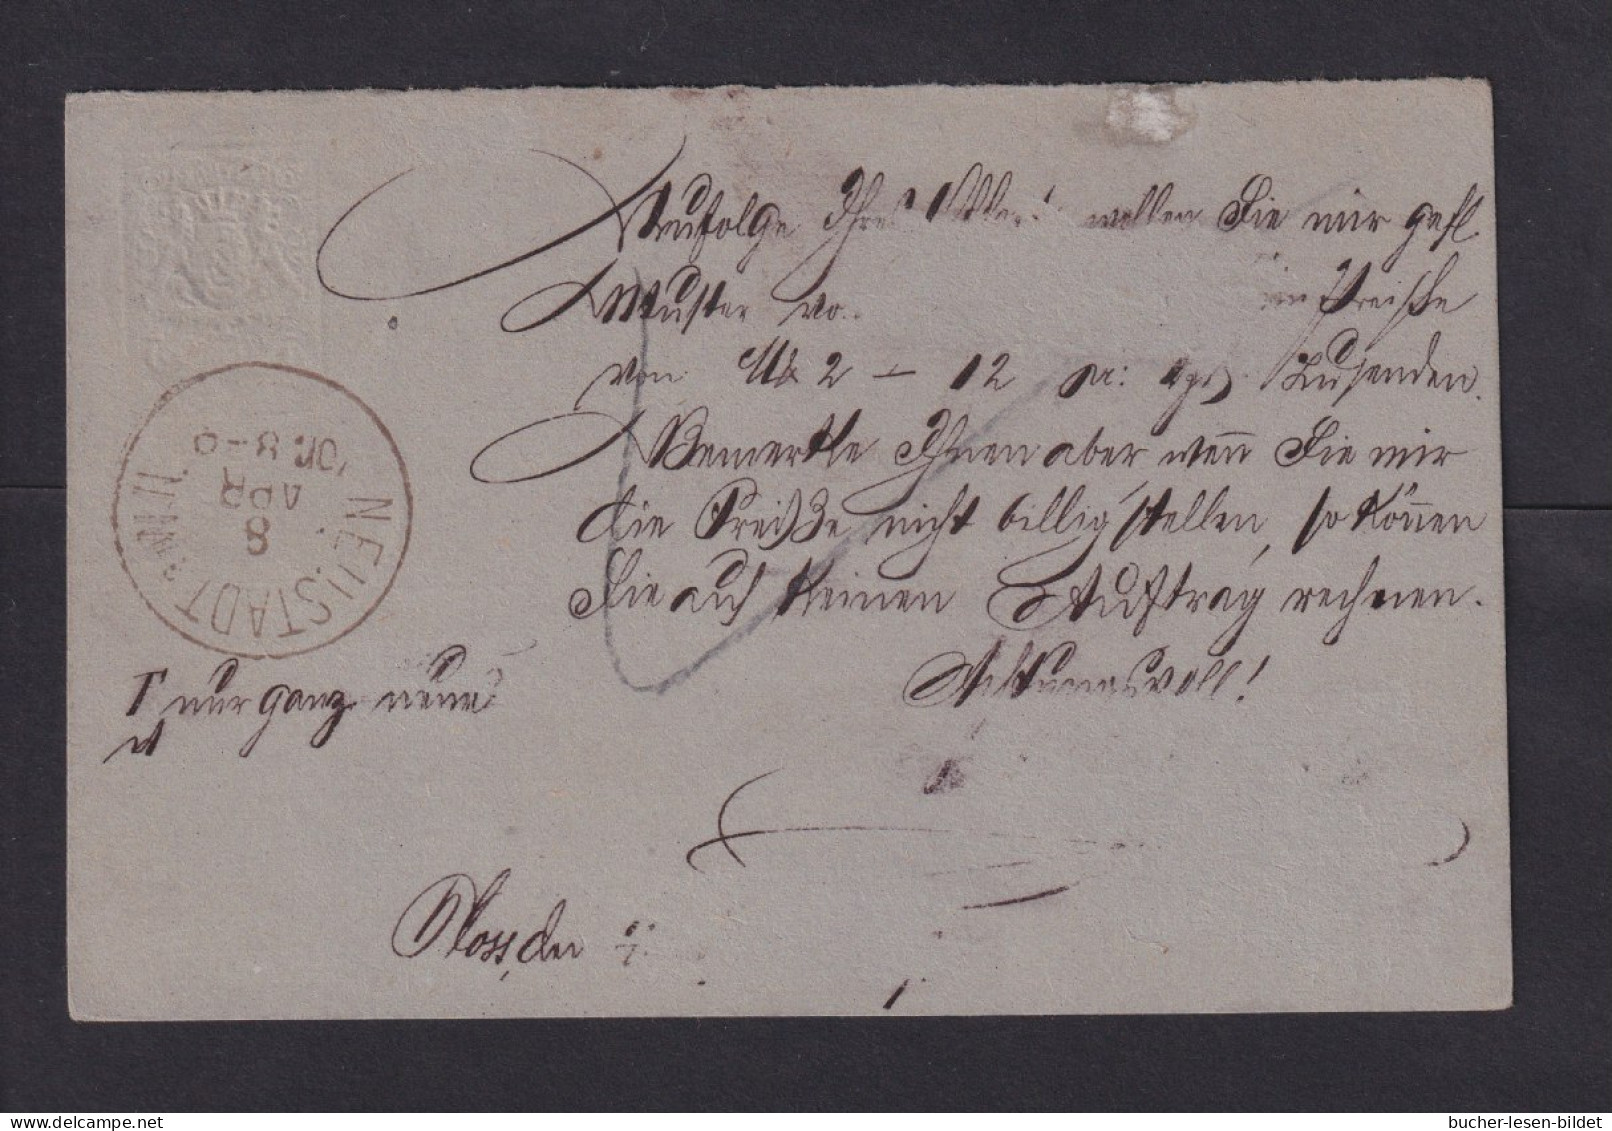 Zufolge Ihres wollen Sie mir gefl.
Muster im Preiße
von M 2 – 12 pr: Zusenden.
Bemerke Ihnen aber, wenn Sie mir
die Preiße nicht billig stellen, so können
Sie auf keinen Auftrag rechnen.
Achtungsvoll!
nur ganz neue
den
NEUSTADT
8
APR
bucher-lesen-bildet